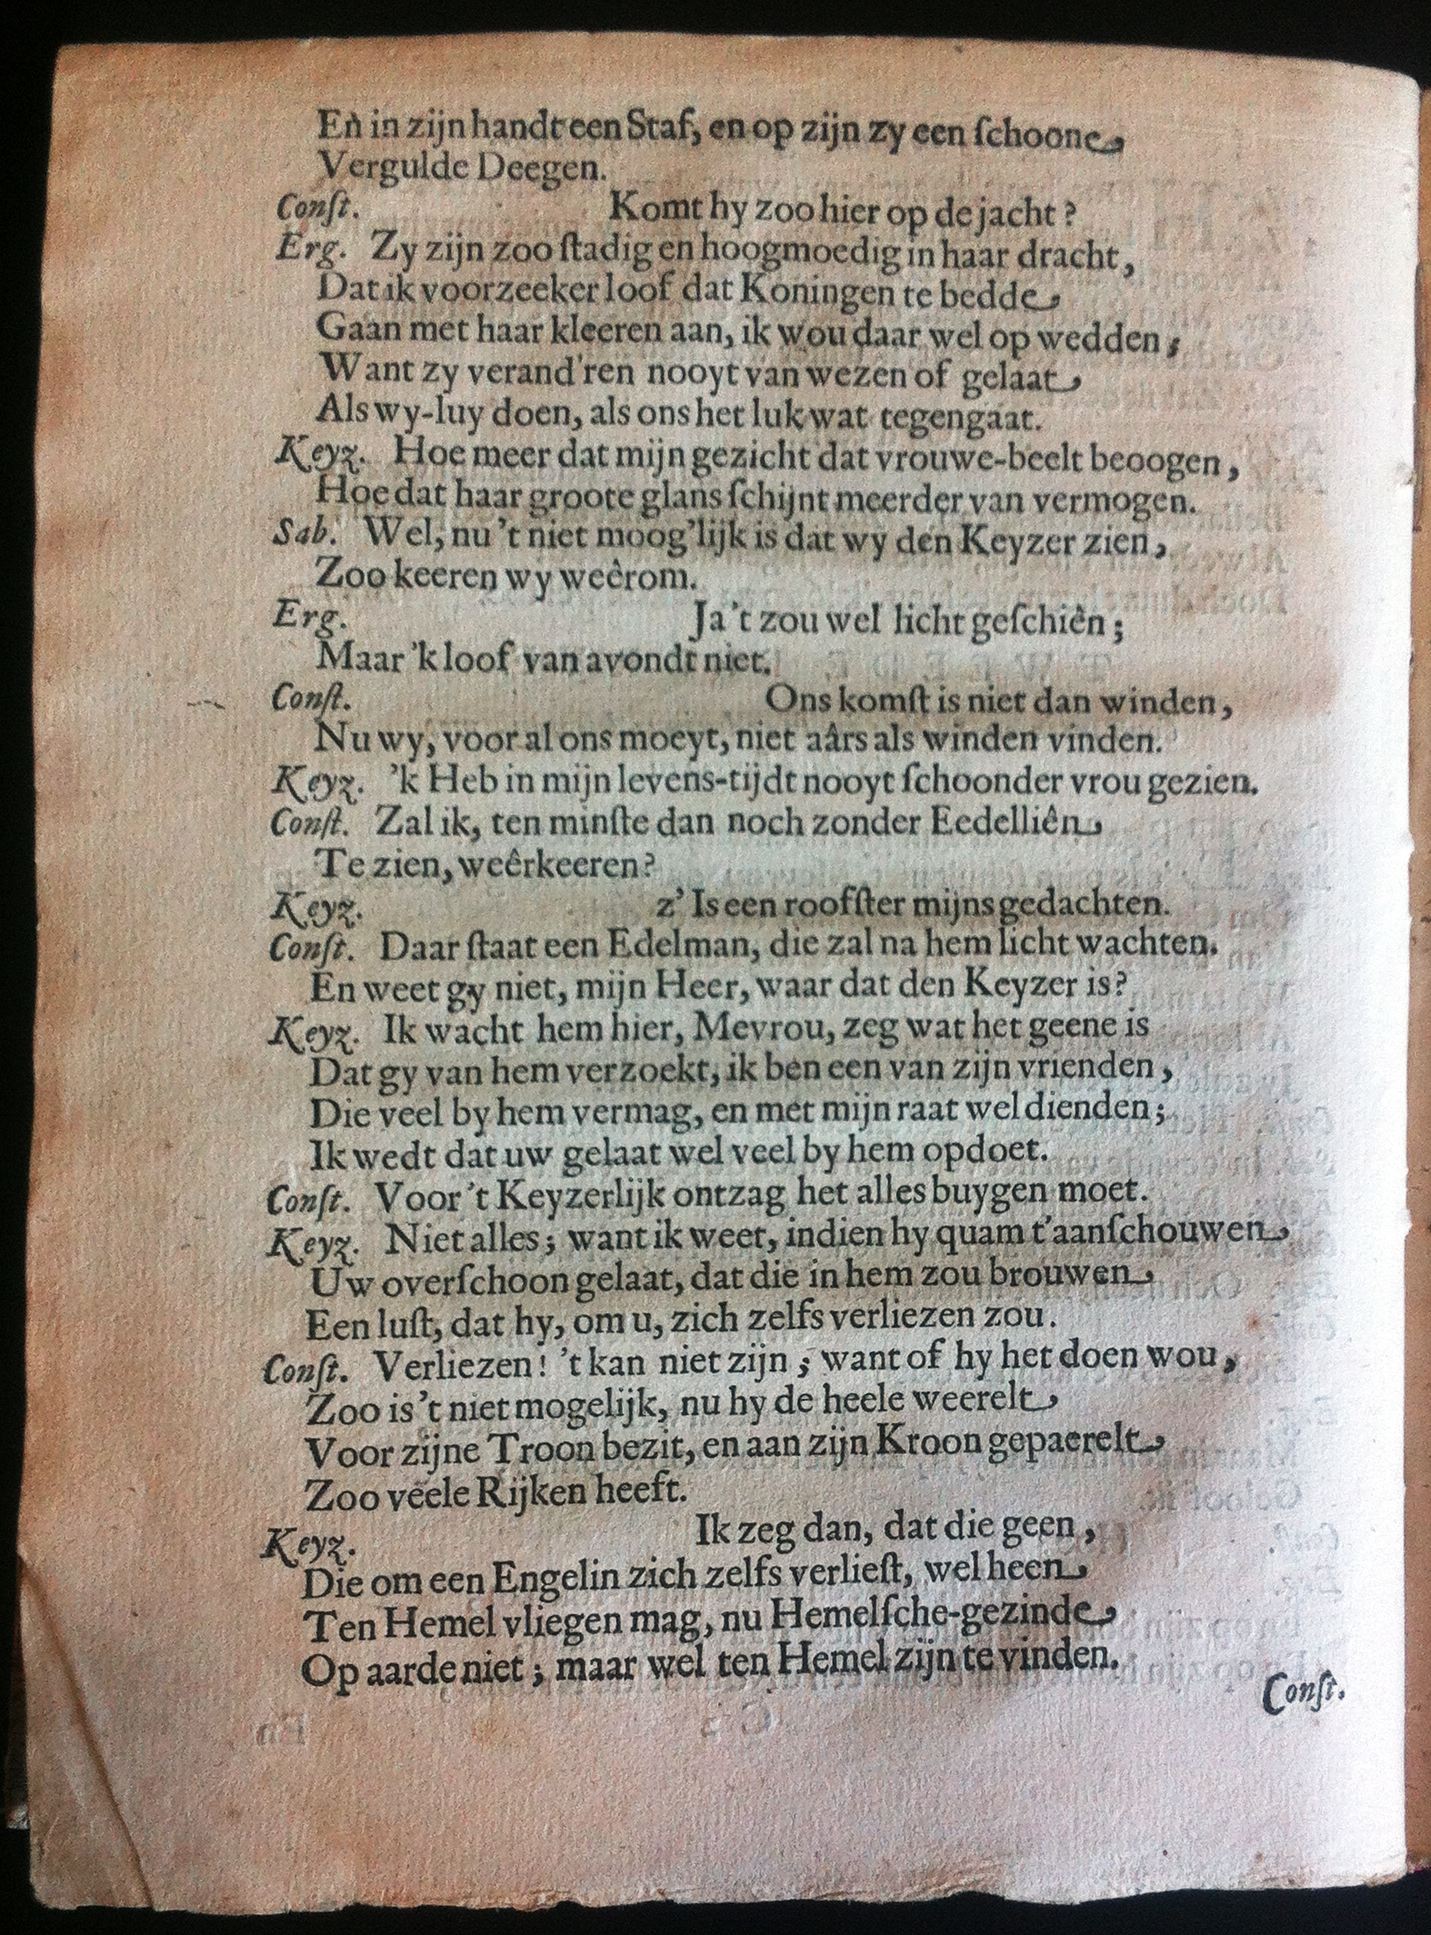 En in zijn handt een Staf, en op zijn zy een ſchoone
Vergulde Deegen.
Conſt. Komt hy zoo hier op de jacht?
Erg. Zy zijn zoo ſtadig en hoogmoedig in haar dracht,
Dat ik voorzeeker loof dat Koningen te bedde
Gaan met haar kleeren aan, ik wou daar wel op wedden,
Want zy verand'ren nooyt van wezen of gelaat
Als wy-luy doen, als ons het luk wat tegengaat.
Keyz. Hoe meer dat mijn gezicht dat vrouwe-beelt beoogen,
Hoe dat haar groote glans ſchijnt meerder van vermogen.
Sab. Wel, nu 't niet moog'lijk is dat wy den Keyzer zien,
Zoo keeren wy weêrom.
Erg. Ja 't zou wel licht geſchiên;
Maar 'k loof van avondt niet.
Conſt. Ons komſt is niet dan winden,
Nu wy, voor al ons moeyt, niet aârs als winden vinden.
Keyz. 'k Heb in mijn levens-tijdt nooyt ſchoonder vrou gezien.
Conſt. Zal ik, ten minſte dan noch zonder Eedelliên
Te zien, weêrkeeren?
Keyz. z' Is een roofſter mijns gedachten.
Conſt. Daar ſtaat een Edelman, die zal na hem licht wachten.
En weet gy niet, mijn Heer, waar dat den Keyzer is?
Keyz. Ik wacht hem hier, Mevrou, zeg wat het geene is
Dat gy van hem verzoekt, ik ben een van zijn vrienden,
Die veel by hem vermag, en met mijn raat wel dienden;
Ik wedt dat uw gelaat wel veel by hem opdoet.
Conſt. Voor 't Keyzerlijk ontzag het alles buygen moet.
Keyz. Niet alles; want ik weet, indien hy quam t'aanſchouwen
Uw overſchoon gelaat, dat die in hem zou brouwen
Een luſt, dat hy, om u, zich zelfs verliezen zou.
Conſt. Verliezen! 't kan niet zijn; want of hy het doen wou,
Zoo is 't niet mogelijk, nu hy de heele weerelt
Voor zijne Troon bezit, en aan zijn Kroon gepaerelt
Zoo veele Rijken heeft.
Keyz. Ik zeg dan, dat die geen,
Die om een Engelin zich zelfs verlieſt, wel heen
Ten Hemel vliegen mag, nu Hemelſche-gezinde
Op aarde niet; maar wel ten Hemel zijn te vinden.
Conſt.